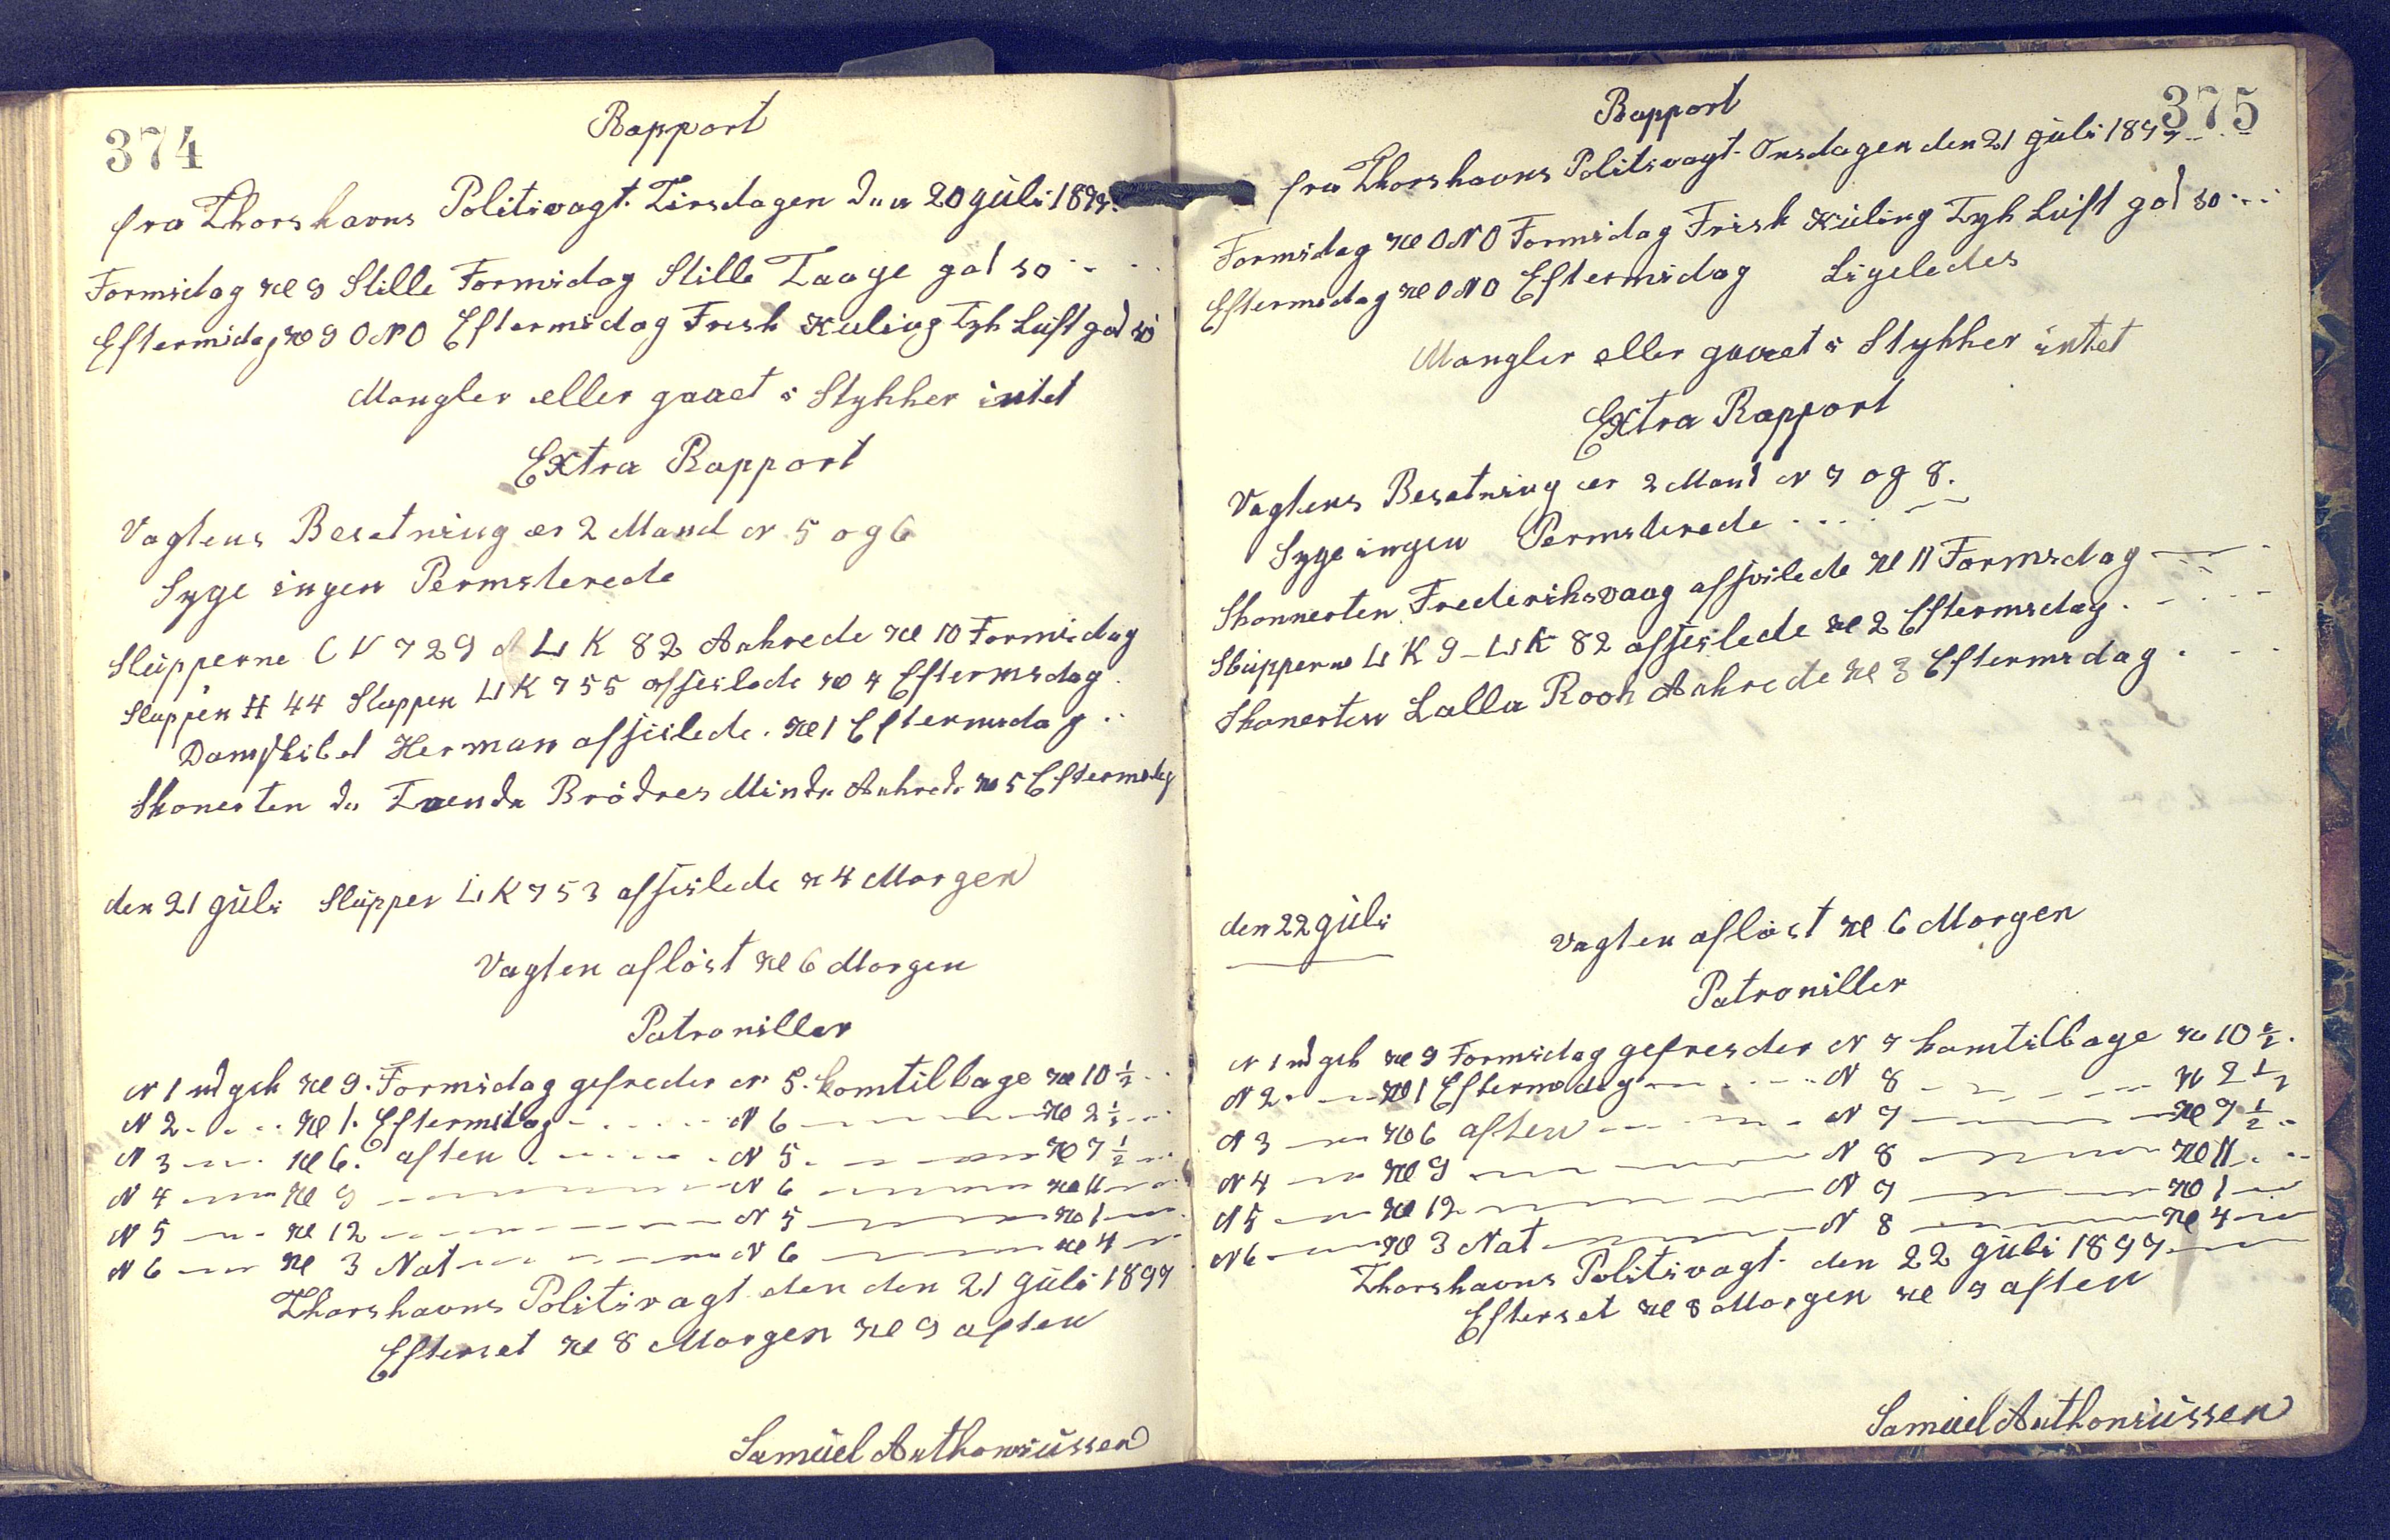 374
Rapport
fra Thorshavns Politivagt. Tirsdagen den 20 Juli 1897.
Formidag Kl 9 Stille Formidag Stille Taage god so
Eftermidag Kl 9 ONO Eftermidag Frisk Kuling Tyk Luft god so
Mangler eller gaaet i Stykker intet
Extra Rapport
Vagtens Besetning er 2 Mand N 5 og 6
Syge ingen Permiterede
Slupperne CV 729 LK 82 Ankrede Kl 10 Formidag
Sluppen H 44 Sluppen LK 755 afseilede Kl 4 Eftermidag.
Dampskibet Herman afseilede. Kl 1 Eftermidag ..
Skonerten de Tvende Brødres Minde Ankrede Kl 5 Eftermidag
den 21 Juli Slupper LK 753 afseilede Kl 4 Morgen
Vagten afløst Kl 6 Morgen
Patroniller
N 1 udgek Kl 9. Formidag gefreder N 5. komtilbage Kl 10 1/2
N 2 Kl 1. Eftermidag N 6 Kl 2 1/2
N 3 Kl 6. aften N 5 Kl 7 1/2
N 4 Kl 9 N 6 Kl 11
N 5 Kl 12 N 5 Kl 1
N 6 Kl 3 Nat N 6 Kl 4
Thorshavns Politivagt den den 21 Juli 1897
Efterset Kl 8 Morgen Kl 9 aften
Samuel Anthoniussen
375
Rapport
fra Thorshavns Politivagt. Onsdagen den 21 Juli 1897
Formidag Kl ONO Formidag Frisk Kuling Tyk Luft god so
Eftermidag Kl ONO Eftermidag Ligeledes
Mangler eller gaaet i Stykker intet
Extra Rapport
Vagtens Besetning er 2 Mand N 7 og 8.
Syge ingen Permiterede
Skonnerten Frederiksvaag afseilede Kl 11 Formidag
Slupperne LK 9 - LK 82 afseilede Kl 2 Eftermidag.
Skonerten Lalla Rooh Ankrede Kl 3 Eftermidag.
den 22 Juli
Vagten afløst Kl 6 Morgen
Patroniller
N 1 udgek Kl 9 Formidag gefresder N 7 komtilbage Kl 10 1/2.
N 2 Kl 1 Eftermidag N 8 Kl 2 1/2
N 3 Kl 6 aften N 7 Kl 7 1/2
N 4 Kl 9 N 8 Kl 11
N 5 Kl 12 N 7 Kl 1
N 6 Kl 3 Nat N 8 Kl 4
Thorshavns Politivagt. den 22 Juli 1897
Efterset Kl 8 Morgen Kl 9 aften
Samuel Anthoniussen